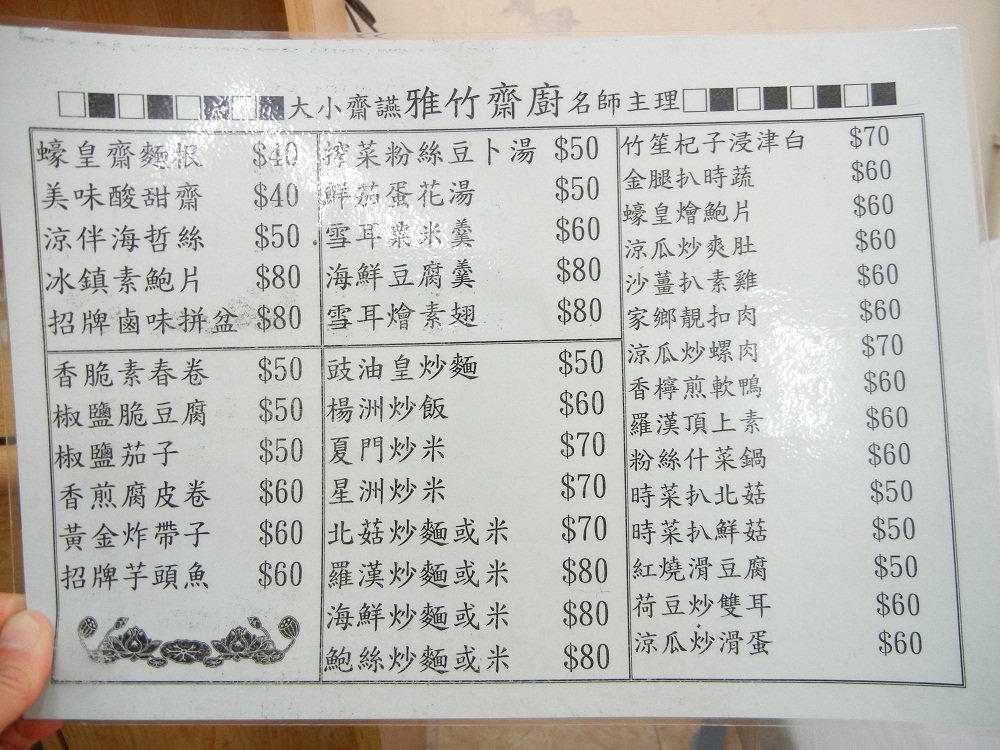 大小齋讌雅竹齋廚名師主理
蠔皇齋麵根 $40
美味酸甜齋 $40
涼伴海哲絲 $50
冰鎮素鮑片 $80
招牌鹵味拼盆 $80
香脆素春卷 $50
椒鹽脆豆腐 $50
椒鹽茄子 $50
香煎腐皮卷 $60
黃金炸帶子 $60
招牌芋頭魚 $60
搾菜粉絲豆卜湯 $50
鮮茄蛋花湯 $50
雪耳粟米羹 $60
海鮮豆腐羹 $80
雪耳燴素翅 $80
豉油皇炒麵 $50
楊洲炒飯 $60
夏門炒米 $70
星洲炒米 $70
北菇炒麵或米 $70
羅漢炒麵或米 $80
海鮮炒麵或米 $80
鮑絲炒麵或米 $80
竹笙杞子浸津白 $70
金腿扒時蔬 $60
蠔皇燴鮑片 $60
涼瓜炒爽肚 $60
沙薑扒素雞 $60
家鄉靚扣肉 $60
涼瓜炒螺肉 $70
香檸煎軟鴨 $60
羅漢頂上素 $60
粉絲什菜鍋 $60
時菜扒北菇 $50
時菜扒鮮菇 $50
紅燒滑豆腐 $50
荷豆炒雙耳 $60
涼瓜炒滑蛋 $60